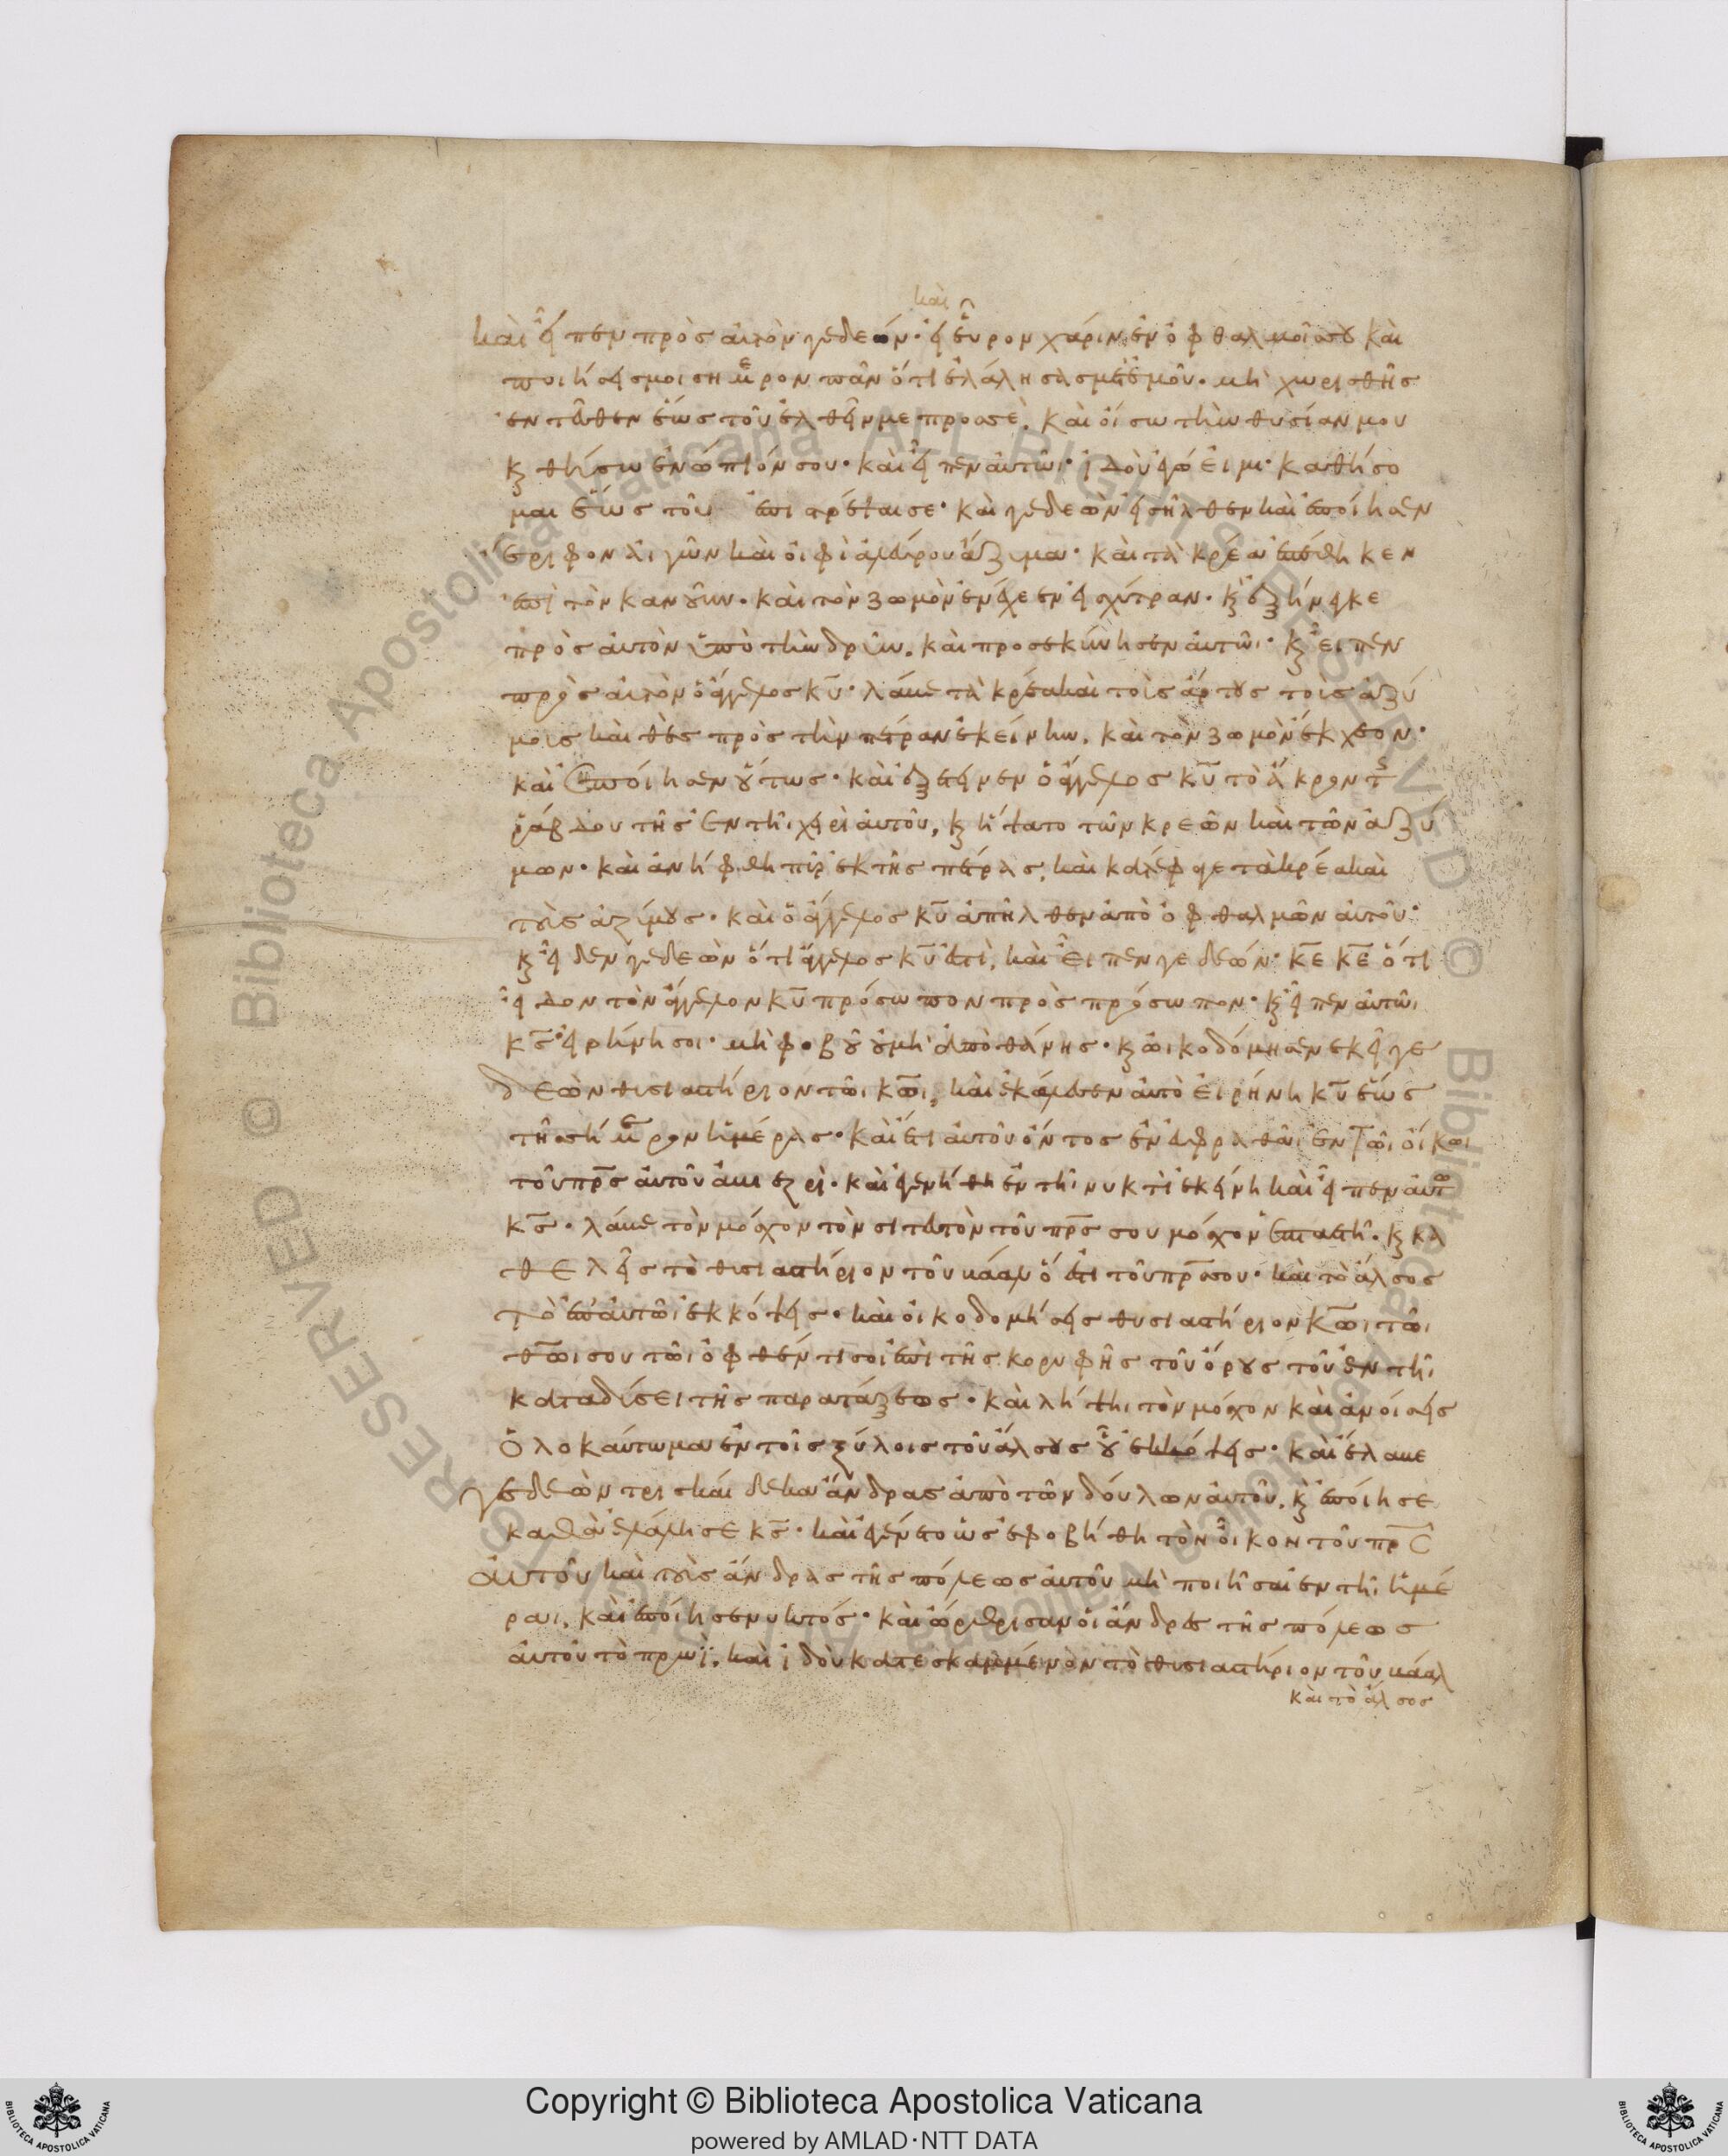 καὶ
καὶ εἶπεν πρὸς αὐτὸν γεδεών· εἰ εὗρον χάριν ἐν ὀφθαλμοῖς σου καὶ
ποιήσεις μοι σήμερον πᾶν ὅτι ἐλάλησας μετ' ἐμοῦ· μὴ χωρισθῆς
ἐντεῦθεν ἕως τοῦ ἐλθεῖν με πρὸς σὲ. καὶ οἴσω τὴν θυσίαν μου
κ θήσω ἐνώπιόν σου· καὶ εἶπεν αὐτῶι· ἰδοὺ ἐγώ εἰμι· καθήσο
μαι ἕως τοῦ ἐπιστρέψαι σε· καὶ γεδεὼν εἰσῆλθεν καὶ ἐποίησεν
ἔριφον αἰγῶν καὶ οἰφὶ ἀλεύρου ἄζυμα· καὶ τὰ κρέα ἐπέθηκεν
ἐπὶ τὸν κανοῦν· καὶ τὸν ζωμὸν ἐνέχεεν εἰς χύτραν· κ ἐξήνεγκε
πρὸς αὐτὸν ὑπὸ τὴν δρῦν. καὶ προσεκύνησεν αὐτῶι· κ εἶπεν
πρὸς αὐτὸν ὁ ἄγγελος κυ· λάβε τὰ κρέα καὶ τοὺς ἄρτους τοὺς ἀζύ
μους καὶ θὲς πρὸς τὴν πέτραν ἐκείνην. καὶ τὸν ζωμὸν ἔκχεον·
καὶ ἐποίησεν οὕτως· καὶ ἐξέτεινεν ὁ ἄγγελος κυ τὸ ἄκρον τῆς
ῥάβδου τῆς ἐν τῆι χειρὶ αὐτοῦ, κ ἥψατο τῶν κρεῶν καὶ τῶν ἀζύ
μων· καὶ ἀνήφθη πῦρ ἐκ τῆς πέτρας, καὶ κατέφαγε τὰ κρέα καὶ
τοὺς ἀζύμους· καὶ ὁ ἄγγελος κυ ἀπῆλθεν ἀπὸ ὀφθαλμῶν αὐτοῦ·
κ εἶδεν γεδεὼν ὅτι ἄγγελος κυ ἐστὶ, καὶ εἶπεν γεδεών· κε κε ὅτι
εἶδον τὸν ἄγγελον κυ πρόσωπον πρὸς πρόσωπον· κ εἶπεν αὐτῶι
κς εἰρήνη σοι· μὴ φοβοῦ οὐ μὴ ἀποθάνης· κ ὠικοδόμησεν ἐκεῖ γε
δεὼν θυσιαστήριον τῶι κωι, καὶ ἐκάλεσεν αὐτὸ εἰρήνη κυ ἕως
τῆς σήμερον ἡμέρας· καὶ ἔτι αὐτοῦ ὄντος ἐν ἐφραθᾶι ἐν τῶι οἴκωι
τοῦ πρς αὐτοῦ ἀβιεζρί· καὶ ἐγενήθη ἐν τῆι νυκτὶ ἐκείνη καὶ εἶπεν αὐτῶ
κς· λάβε τὸν μόσχον τὸν σιτευτὸν τοῦ πρς σου μόσχον ἑπταετῆ· κ κα
θελεῖς τὸ θυσιαστήριον τοῦ βάαλ ὅ ἐστι τοῦ πρς σου· καὶ τὸ ἄλσος
τὸ ἐπ' αὐτῶι ἐκκόψεις· καὶ οἰκοδομήσεις θυσιαστήριον κωι τῶι
θωι σου τῶι ὀφθέντι σοι ἐπὶ τῆς κορυφῆς τοῦ ὄρους τοῦ ἐν τῆι
καταδύσει τῆς παρατάξεως· καὶ λήψηι τὸν μόσχον καὶ ἀνοίσεις
ὁλοκαύτωμα ἐν τοῖς ξύλοις τοῦ ἄλσους οὗ ἐκκόψεις· καὶ ἔλαβε
γεδεὼν τρισκαίδεκα ἄνδρας ἀπὸ τῶν δούλων αὐτοῦ, κ ἐποίησε
καθὰ ἐλάλησε κς· καὶ ἐγένετο ὡς ἐφοβήθη τὸν οἶκον τοῦ πρς
αὐτοῦ καὶ τοὺς ἄνδρας τῆς πόλεως αὐτοῦ μὴ ποιῆσαι ἐν τῆι ἡμέ
ραι. καὶ ἐποίησεν νυκτός· καὶ ὤρθρισαν οἱ ἄνδρες τῆς πόλεως
αὐτοῦ τὸ πρωΐ· καὶ ἰδοὺ κατεσκαμμένον τὸ θυσιαστήριον τοῦ βάαλ
καὶ τὸ ἄλσος
Copyright © Biblioteca Apostolica Vaticana
powered by AMLAD·NTT DATA